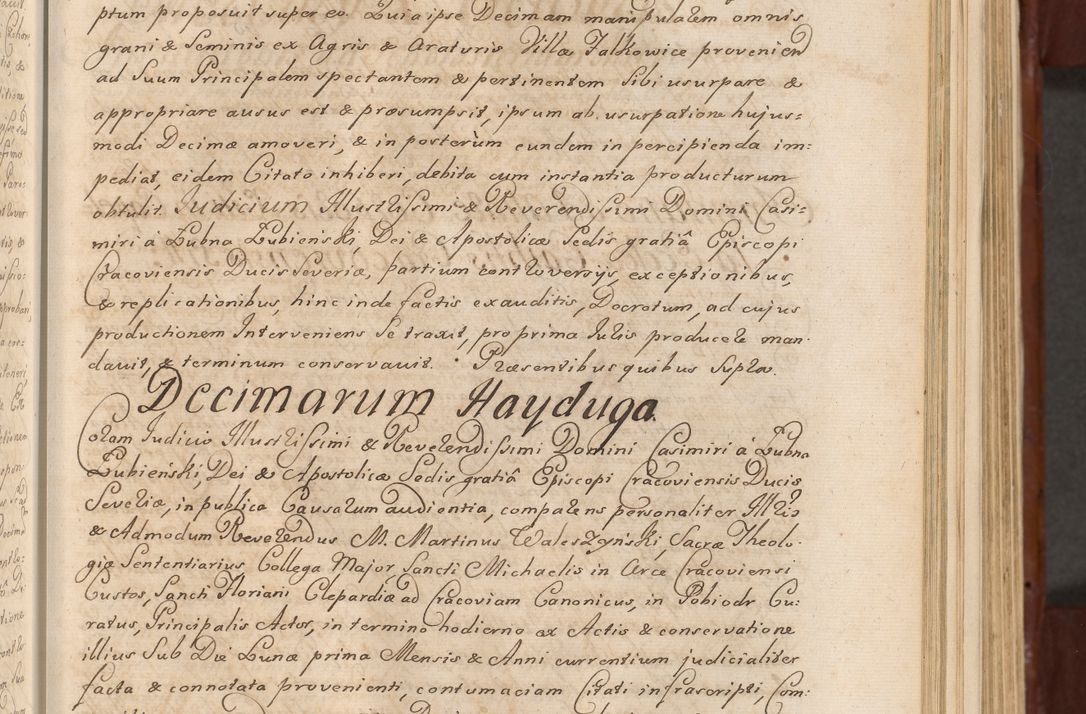 ptum proposuit super eo. Quia ipse Decimam manipulalem omnis
grani & Seminis ex Agris & Araturis Villæ Falkowice provenien
ad Suum Principalem spectantem & pertinentem Sibi usurpare &
appropriare ausus est & præsumpsit, ipsum ab usurpatione hujus=
modi Decimæ amoveri, & in posterùm eundem in percipienda im=
pediat, eidem Citato inhiberi, debita cum instantia producturum
obtulit. Judicium Illustrissimi & Reverendissimi Domini Casi=
miri à Łubna Łubieński, Dei & Apostolicæ Sedis gratiâ Episcopi
Cracoviensis Ducis Severiæ, partium controversijs, exceptionibus,
& replicationibus, hinc inde factis exauditis, Decretum, ad cujus
productionem Interveniens Se traxit, pro prima Juris producere man
davit, & terminum conservavit. Præsentibus quibus Supra.
Decimarum Hayduga.
Coram Judicio Illustrissimi & Reverendissimi Domini Casimiri à Łubna
Łubieński, Dei & Apostolicæ Sedis gratiâ Episcopi Cracoviensis Ducis
Severiæ, in publica Causarum audientia, comparens personaliter Illris
& Admodum Reverendus M. Martinus Waleszyński, Sacræ Theolo-
giæ Sententiarius, Collega Major, Sancti Michaelis in Arce Cracoviensi
Custos, Sancti Floriani Clepardiæ ad Cracoviam Canonicus, in Pobiedr Cu=
ratus, Principalis Actor, in termino hodierno ex Actis & conservatione
illius Sub Die Lunæ prima Mensis & Anni currentium judicialiter
facta & connotata provenienti, contumaciam Citati infrascripti, Com=